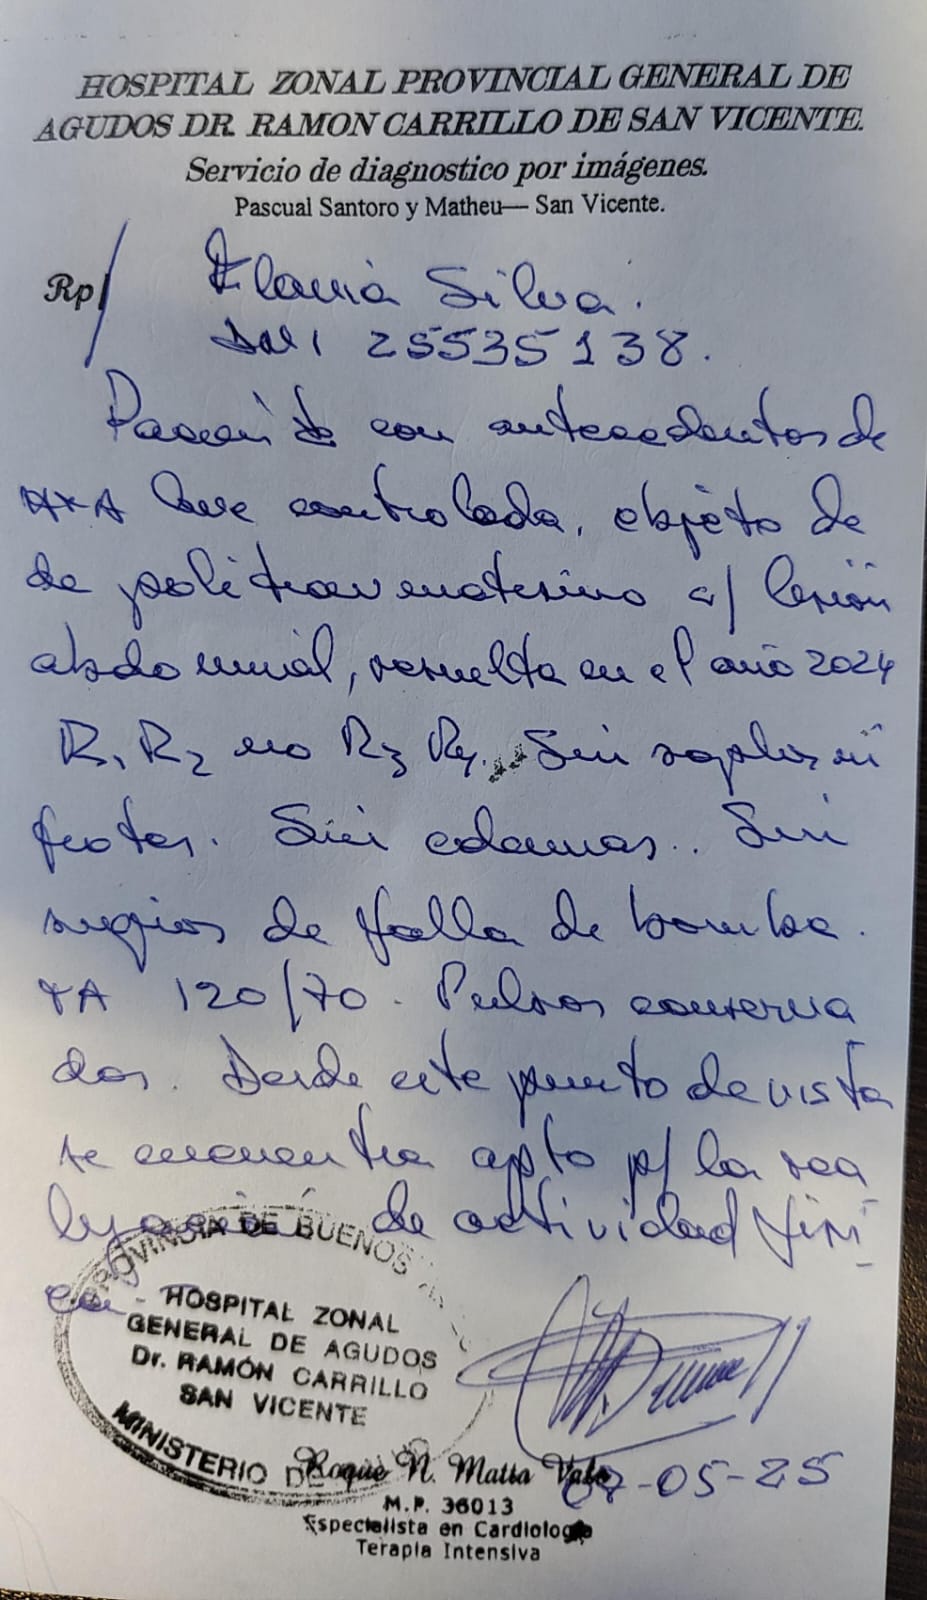 HOSPITAL ZONAL PROVINCIAL GENERAL DE
AGUDOS DR. RAMON CARRILLO DE SAN VICENTE.
Servicio de diagnostico por imágenes.
Pascual Santoro y Matheu— San Vicente.
Rp/ Flavia Silva.
DNI 25535138.
Paciente con antecedentes de
HTA leve controlada, objeto de
de politraumatismo c/ lesión
abdominal, resuelta en el año 2024
R1 R2 no R3 R4. Sin soplos ni
frotes. Sin edemas.. Sin
signos de falla de bomba.
TA 120/70. Pulsos conserva
dos. Desde este punto de vista
se encuentra apto p/ la rea
lización de actividad físi
ca.
PROVINCIA DE BUENOS
HOSPITAL ZONAL
GENERAL DE AGUDOS
Dr. RAMÓN CARRILLO
SAN VICENTE
MINISTERIO DE
Roque N. Matta
07-05-25
M.P. 36013
Especialista en Cardiología
Terapia Intensiva